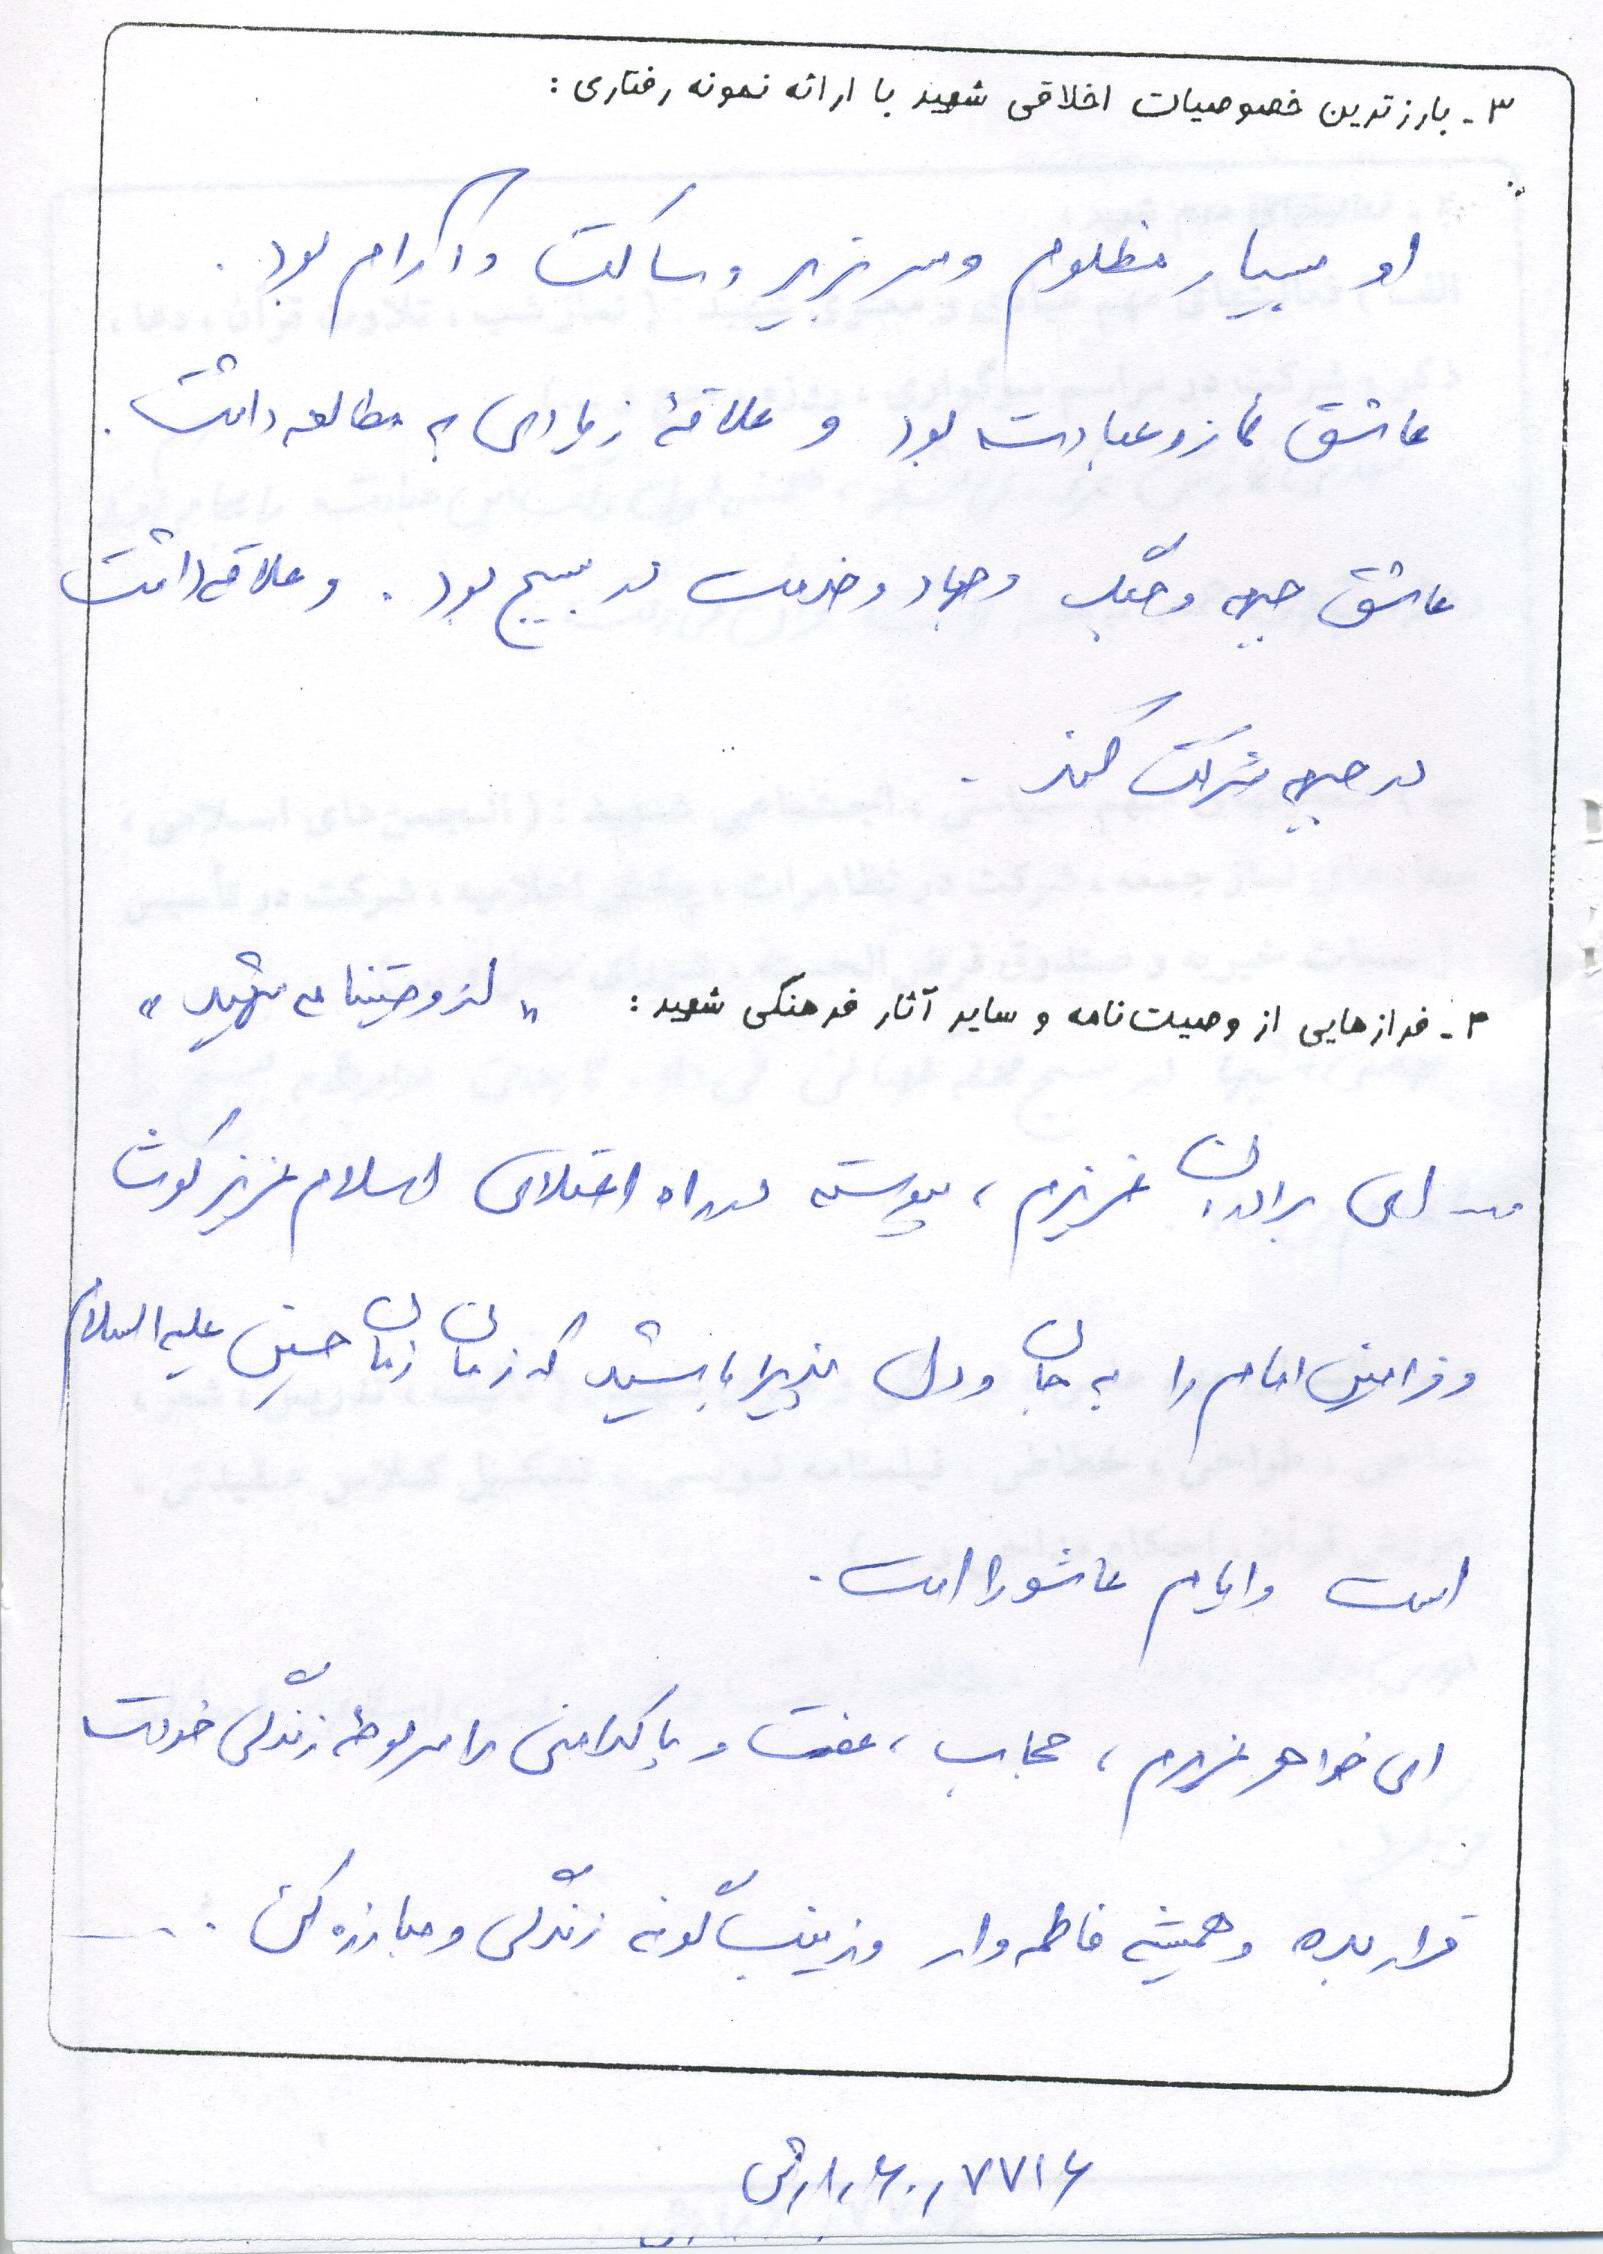 ۳- بارزترین خصوصیات اخلاقی شهید با ارائه نمونه رفتاری:
او بسیار مظلوم و سر بزیر و ساکت و آرام بود.
عاشق نماز و عبادت بود و علاقهٔ زیادی به مطالعه داشت.
عاشق جبهه و جنگ و جهاد و خدمت در بسیج بود. و علاقه داشت
در جبهه شرکت کند.
۴- فرازهایی از وصیت‌نامه و سایر آثار فرهنگی شهید: «از وصیتنامه شهید»
ای برادران عزیزم، پیوسته در راه اعتلای اسلام عزیز کوشا
و فرامین امام را به جان و دل پذیرا باشید که زمان زمان حسین علیه السلام
است و ایام عاشورا است.
ای خواهر عزیزم، حجاب، عفت و پاکدامنی را سرلوحهٔ زندگی خودت
قرار بده و همیشه فاطمه‌وار و زینب‌گونه زندگی و مبارزه کن. ...
۷۷۱۶